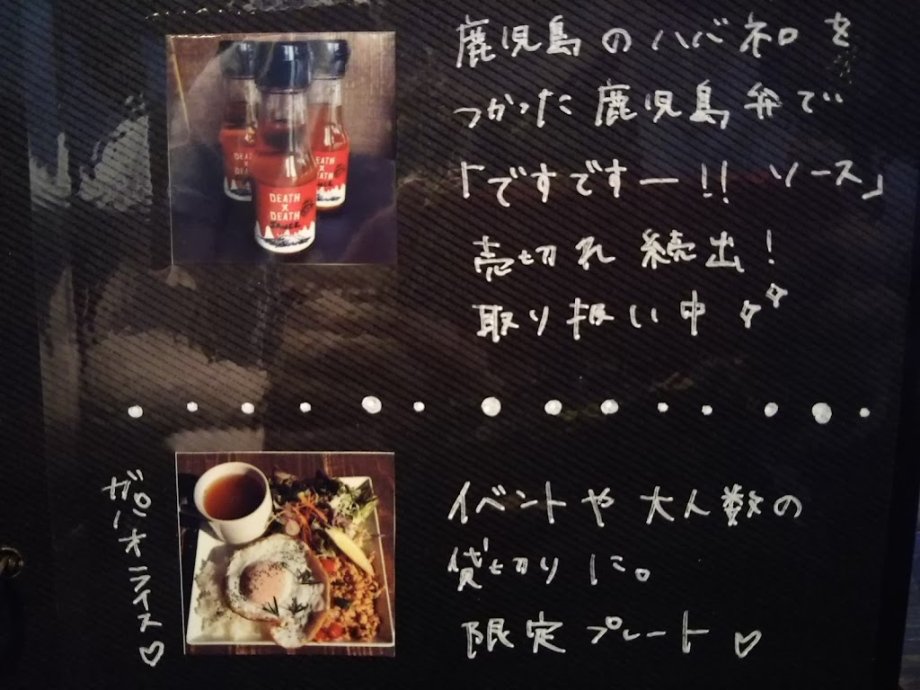 鹿児島のハバネロを
つかった鹿児島弁で
「ですですー!! ソース」
売切れ続出!
取り扱い中
DEATH
×
DEATH
Sauce
ガパオライス♡
イベントや大人数の
貸切りに。
限定プレート♡